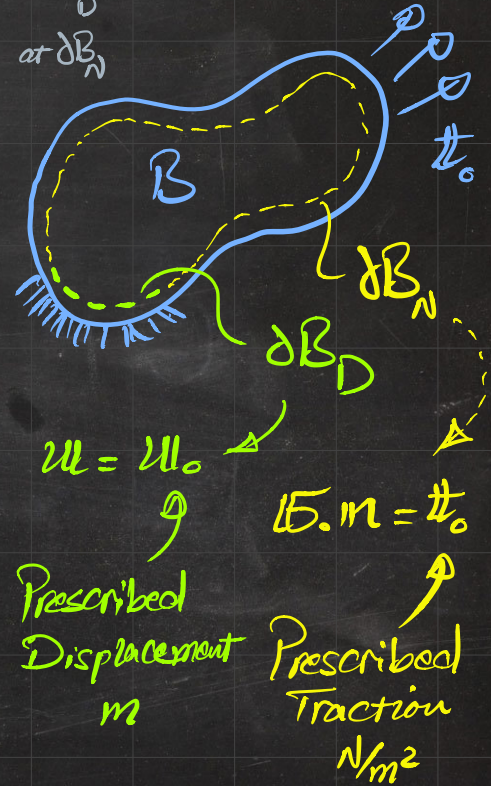 D
at ∂B_N
𝕥₀
B
∂B_N
∂B_D
𝕦 = 𝕦₀
𝕤.𝕟 = 𝕥₀
Prescribed
Displacement
m
Prescribed
Traction
N/m²